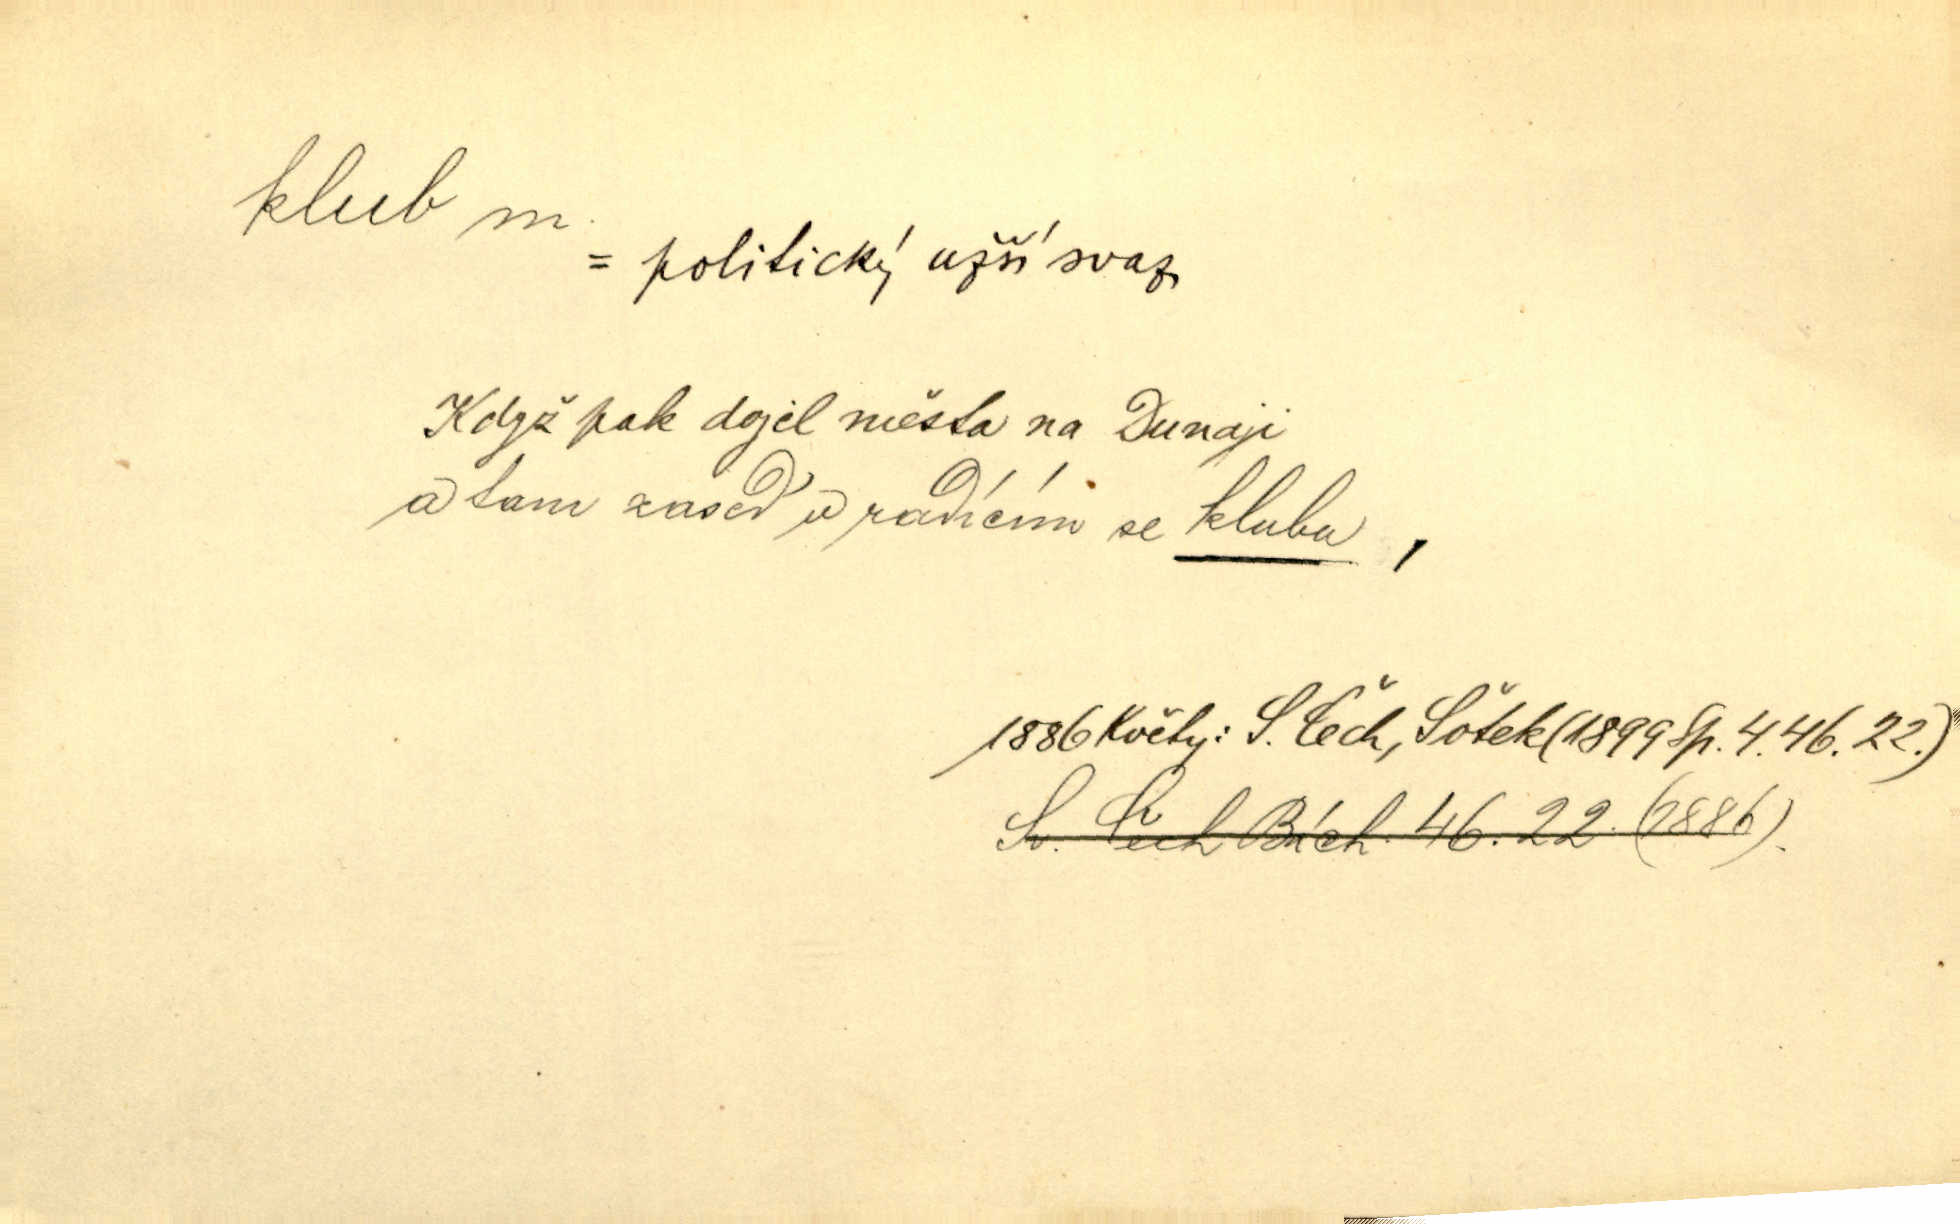 klub m.
= politický užší svaz
Když pak dojel města na Dunaji
a tam zased v radícím se klubu,
1886 Květy: S. Čech, Šotek (1899 Sp. 4. 46. 22.)
Sv. Čech 46. 22. (1886).